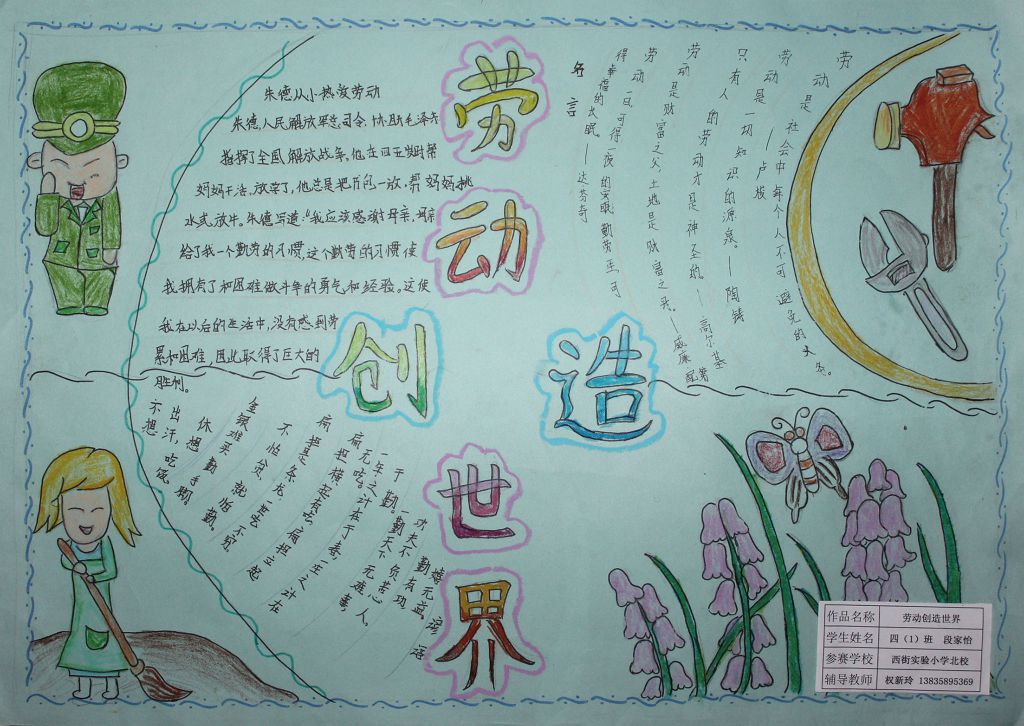 劳动
创造
世界
朱德从小热爱劳动
朱德,人民解放军总司令,协助毛泽东
指挥了全国解放战争。他在四五岁时帮
妈妈干活,放学了,他总是把书包一放,帮妈妈挑
水或放牛。朱德写道:“我应该感谢母亲,母亲
给了我一个勤劳的习惯,这个勤劳的习惯使
我拥有了和困难做斗争的勇气和经验。这使
我在以后的生活中,没有感到劳
累和困难,因此取得了巨大的
胜利。
名言
劳动是社会中每个人不可避免的义务。
——卢梭
劳动是一切知识的源泉。——陶铸
只有人的劳动才是神圣的。——高尔基
劳动是财富之父,土地是财富之母。——威廉配第
劳动一日,可得一夜的安眠,勤劳一生,可
得幸福的长眠。——达芬奇
不想出汗,休想吃饭。
金银难买勤手脚。
不怕贫,就怕不勤。
扁担是条龙,一生吃不穷
一年之计在于春,一生之计在
于勤。
作品名称 劳动创造世界
学生姓名 四(1)班 段家怡
参赛学校 西街实验小学北校
辅导教师 权新玲 13835895369